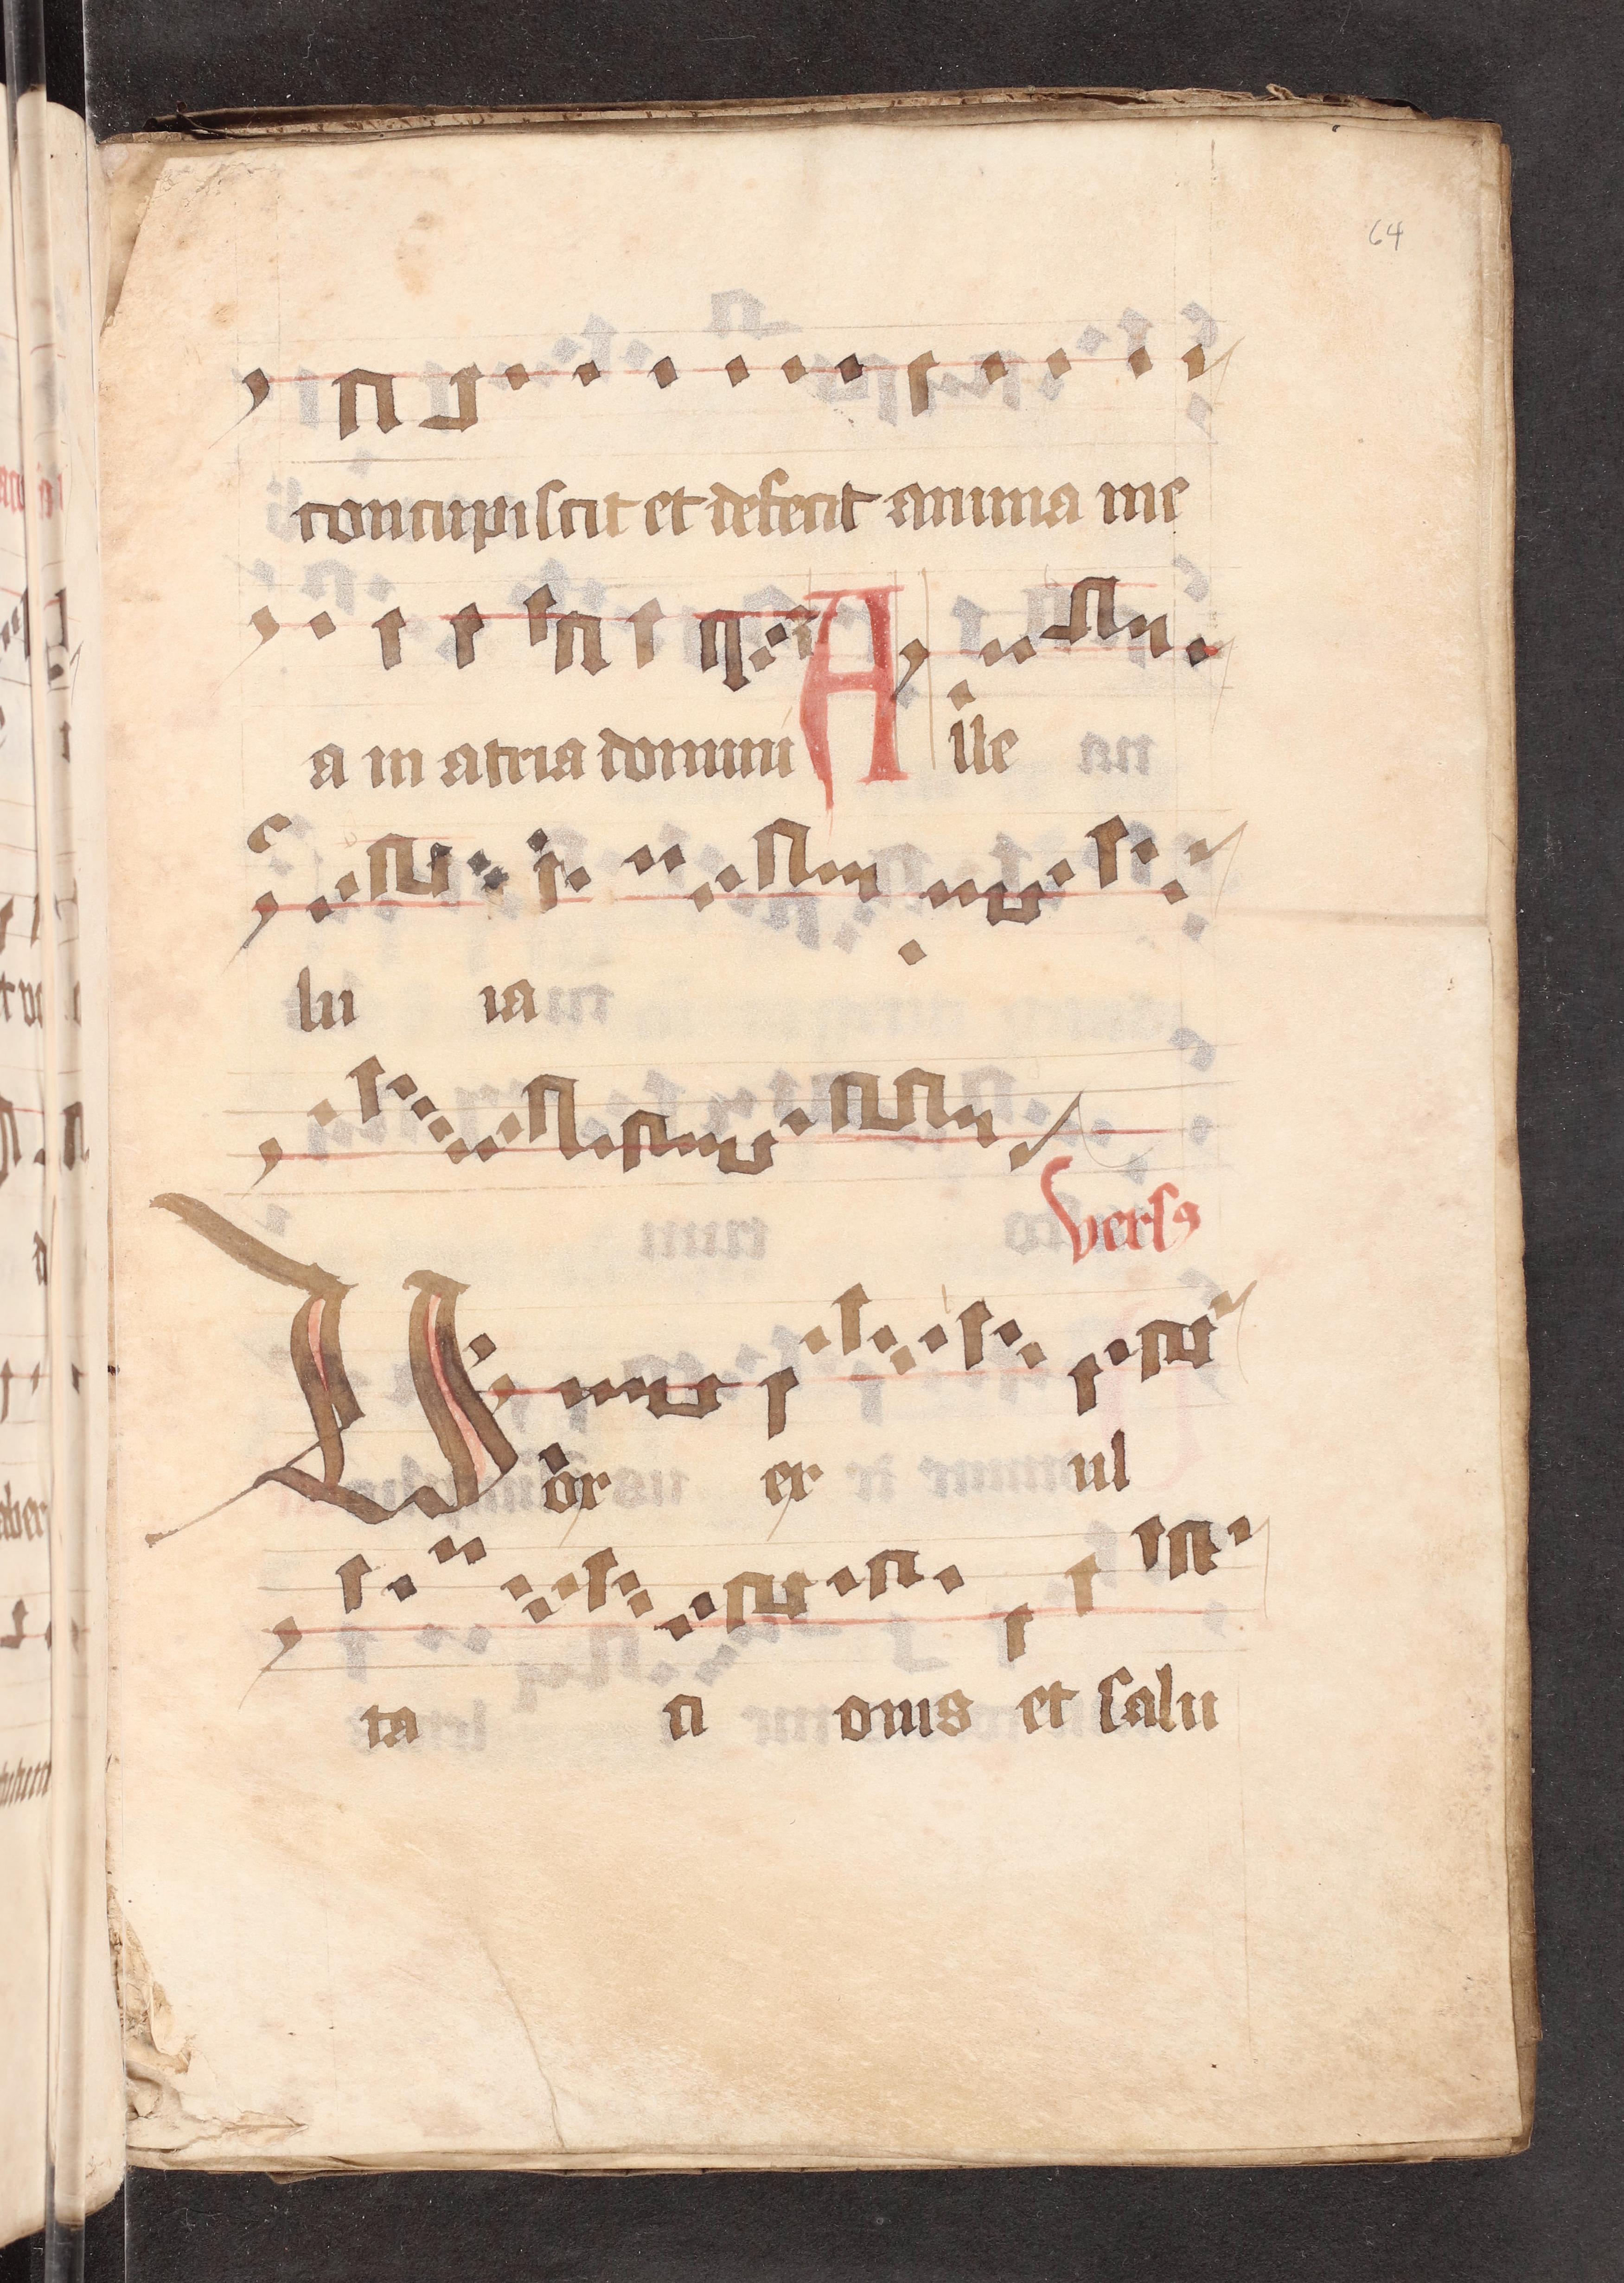 64
concupiscit et defecit anima me
a in atria domini Alle
lu ia
vers9
Vox ex ul
ta ti onis et salu